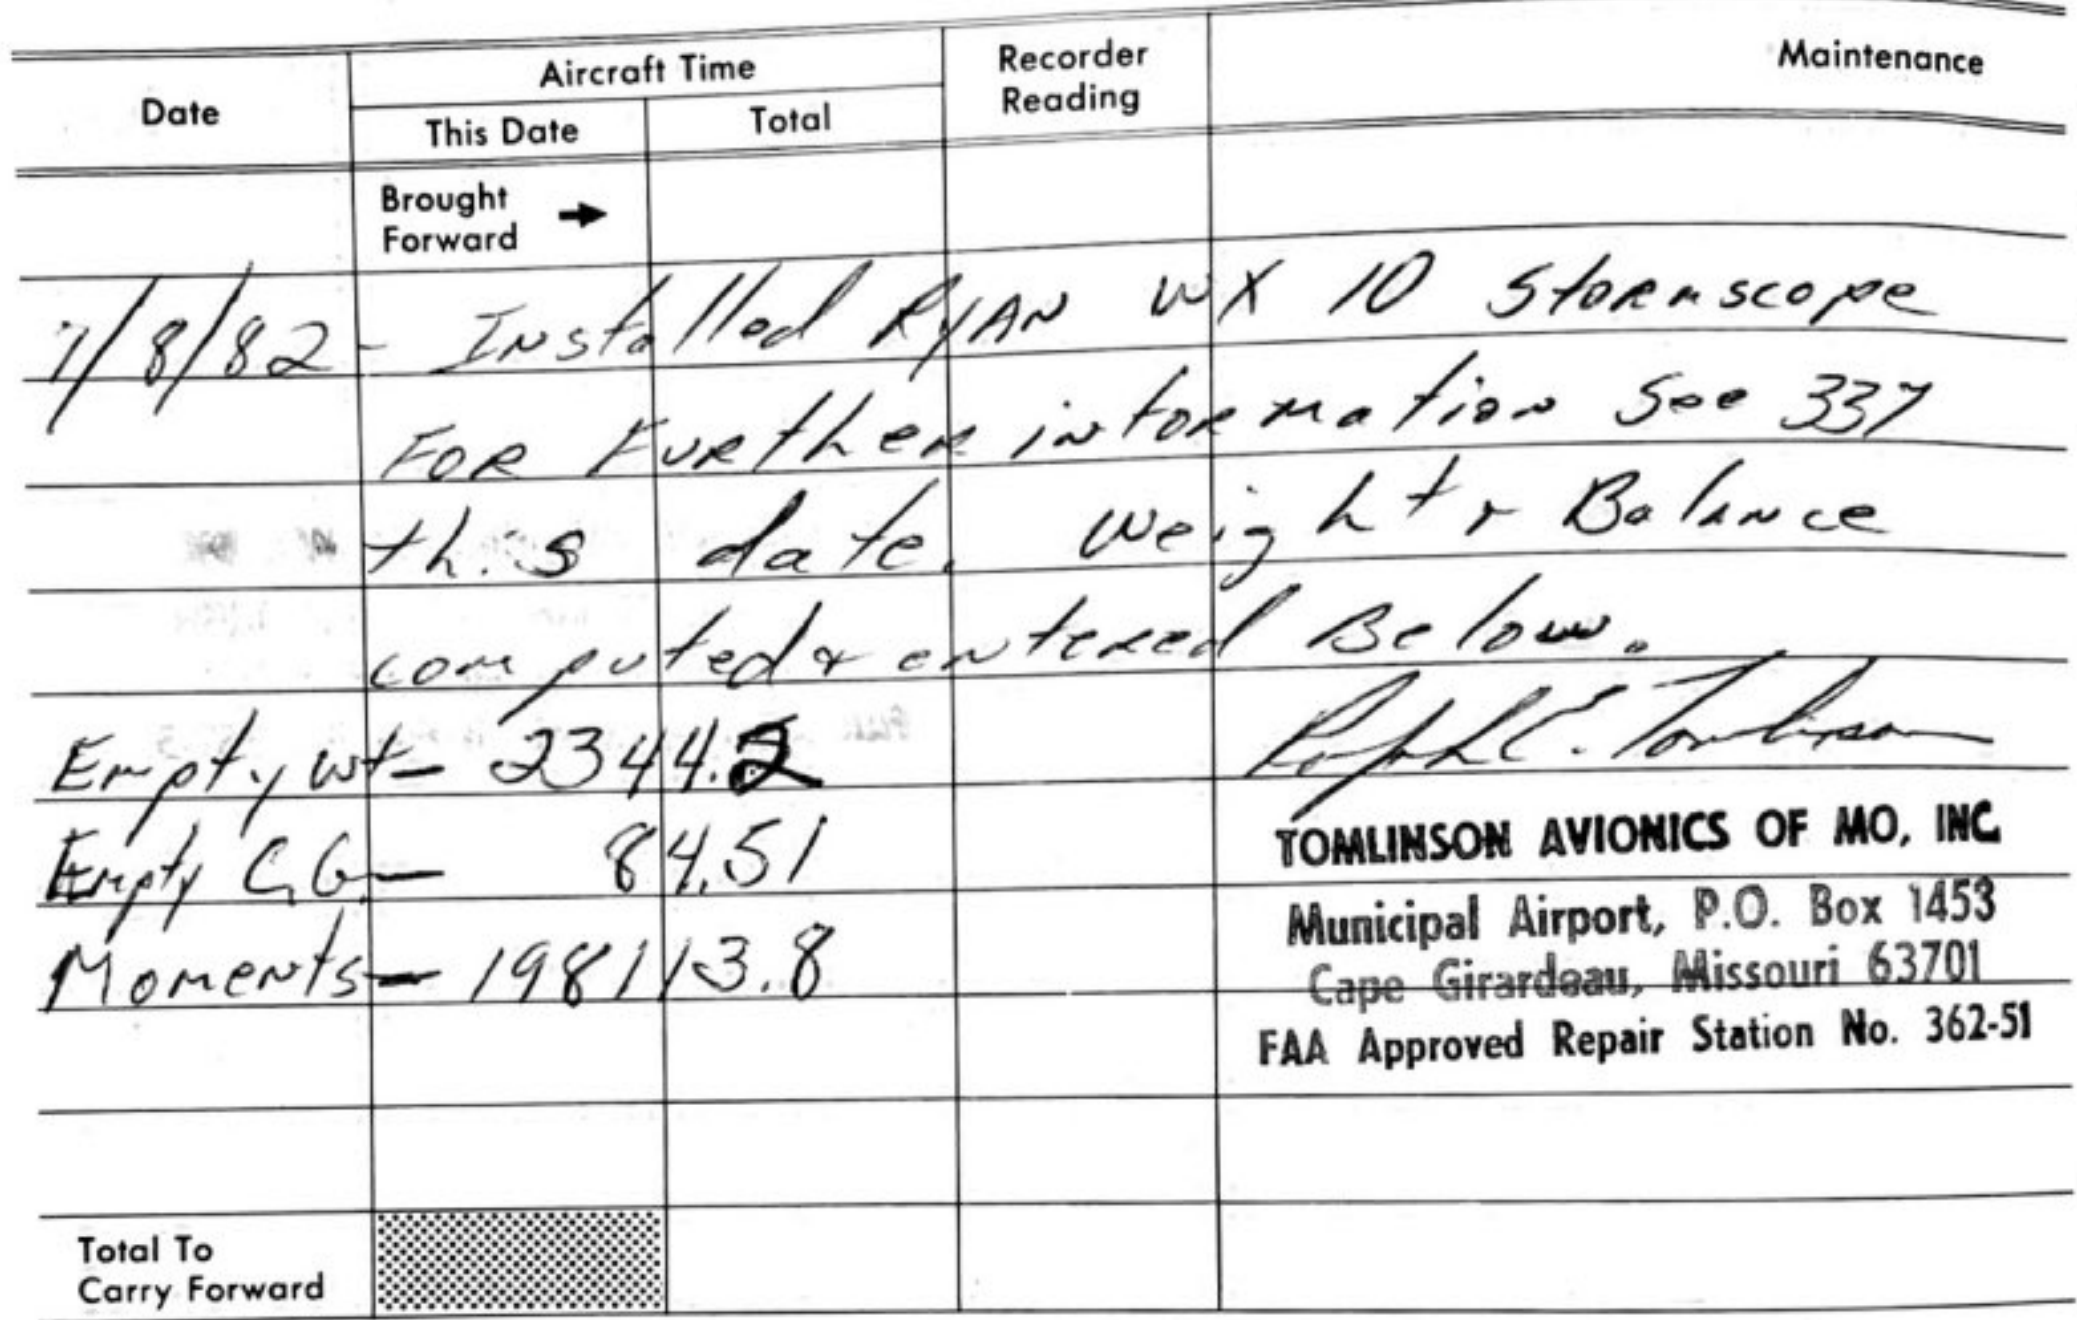 Date
Aircraft Time
Recorder Reading
Maintenance
This Date
Total
Brought Forward →
7/8/82 - Installed RYAN WX 10 Stormscope
FOR FURther information See 337
this date. Weight & Balance
computed & entered Below.
Empty wt - 2344.2
Ralph E. Tomlinson
Empty C.G. - 84.51
TOMLINSON AVIONICS OF MO, INC
Municipal Airport, P.O. Box 1453
Moments - 198113.8
Cape Girardeau, Missouri 63701
FAA Approved Repair Station No. 362-51
Total To
Carry Forward